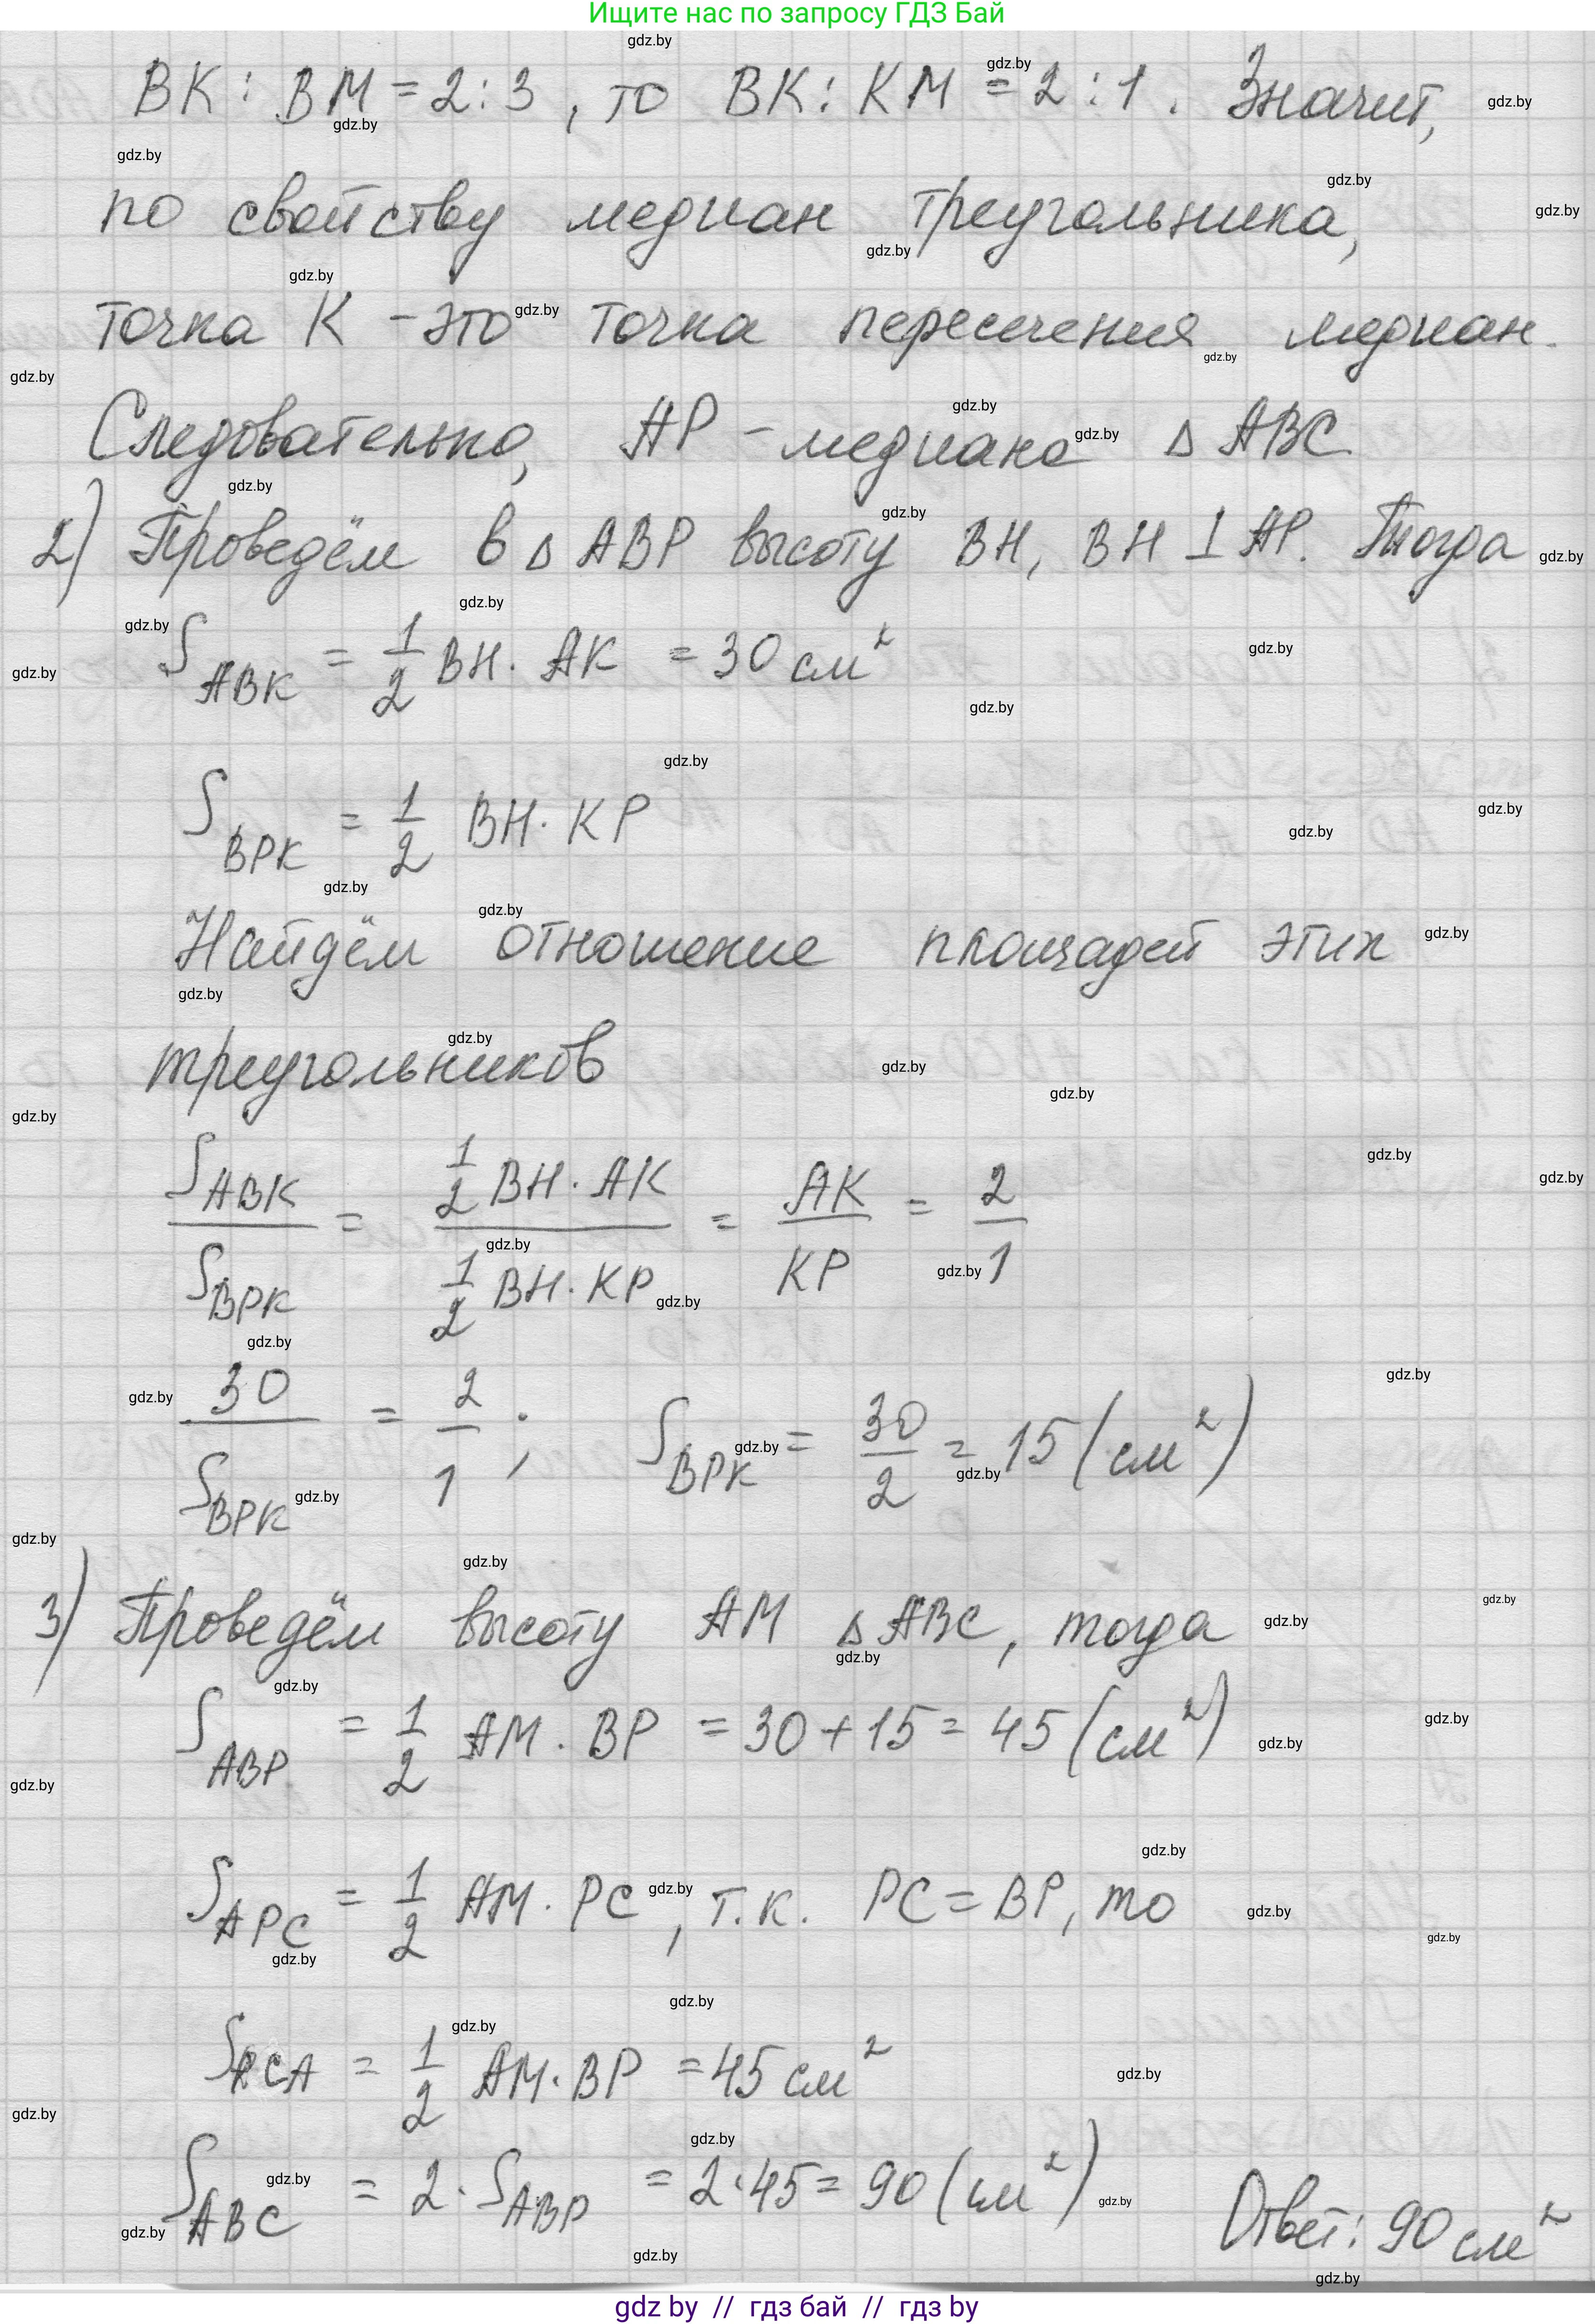 Ищите нас по запросу ГДЗ Бай
BK : BM = 2 : 3 , то BK : KM = 2 : 1 . Значит,
по свойству медиан треугольника,
точка K – это точка пересечения медиан.
Следовательно, AP – медиана Δ ABC
2) Проведём в Δ ABP высоту BH, BH ⊥ AP. Тогда
S_ABK = 1/2 BH · AK = 30 см²
S_BPK = 1/2 BH · KP
Найдём отношение площадей этих
треугольников
S_ABK / S_BPK = (1/2 BH · AK) / (1/2 BH · KP) = AK / KP = 2 / 1
30 / S_BPK = 2 / 1 ; S_BPK = 30/2 = 15 (см²)
3) Проведём высоту AM Δ ABC, тогда
S_ABP = 1/2 AM · BP = 30 + 15 = 45 (см²)
S_APC = 1/2 AM · PC , т.к. PC = BP, то
S_PCA = 1/2 AM · BP = 45 см²
S_ABC = 2 · S_ABP = 2 · 45 = 90 (см²)
Ответ: 90 см²
gdz by // гдз бай // гдз by